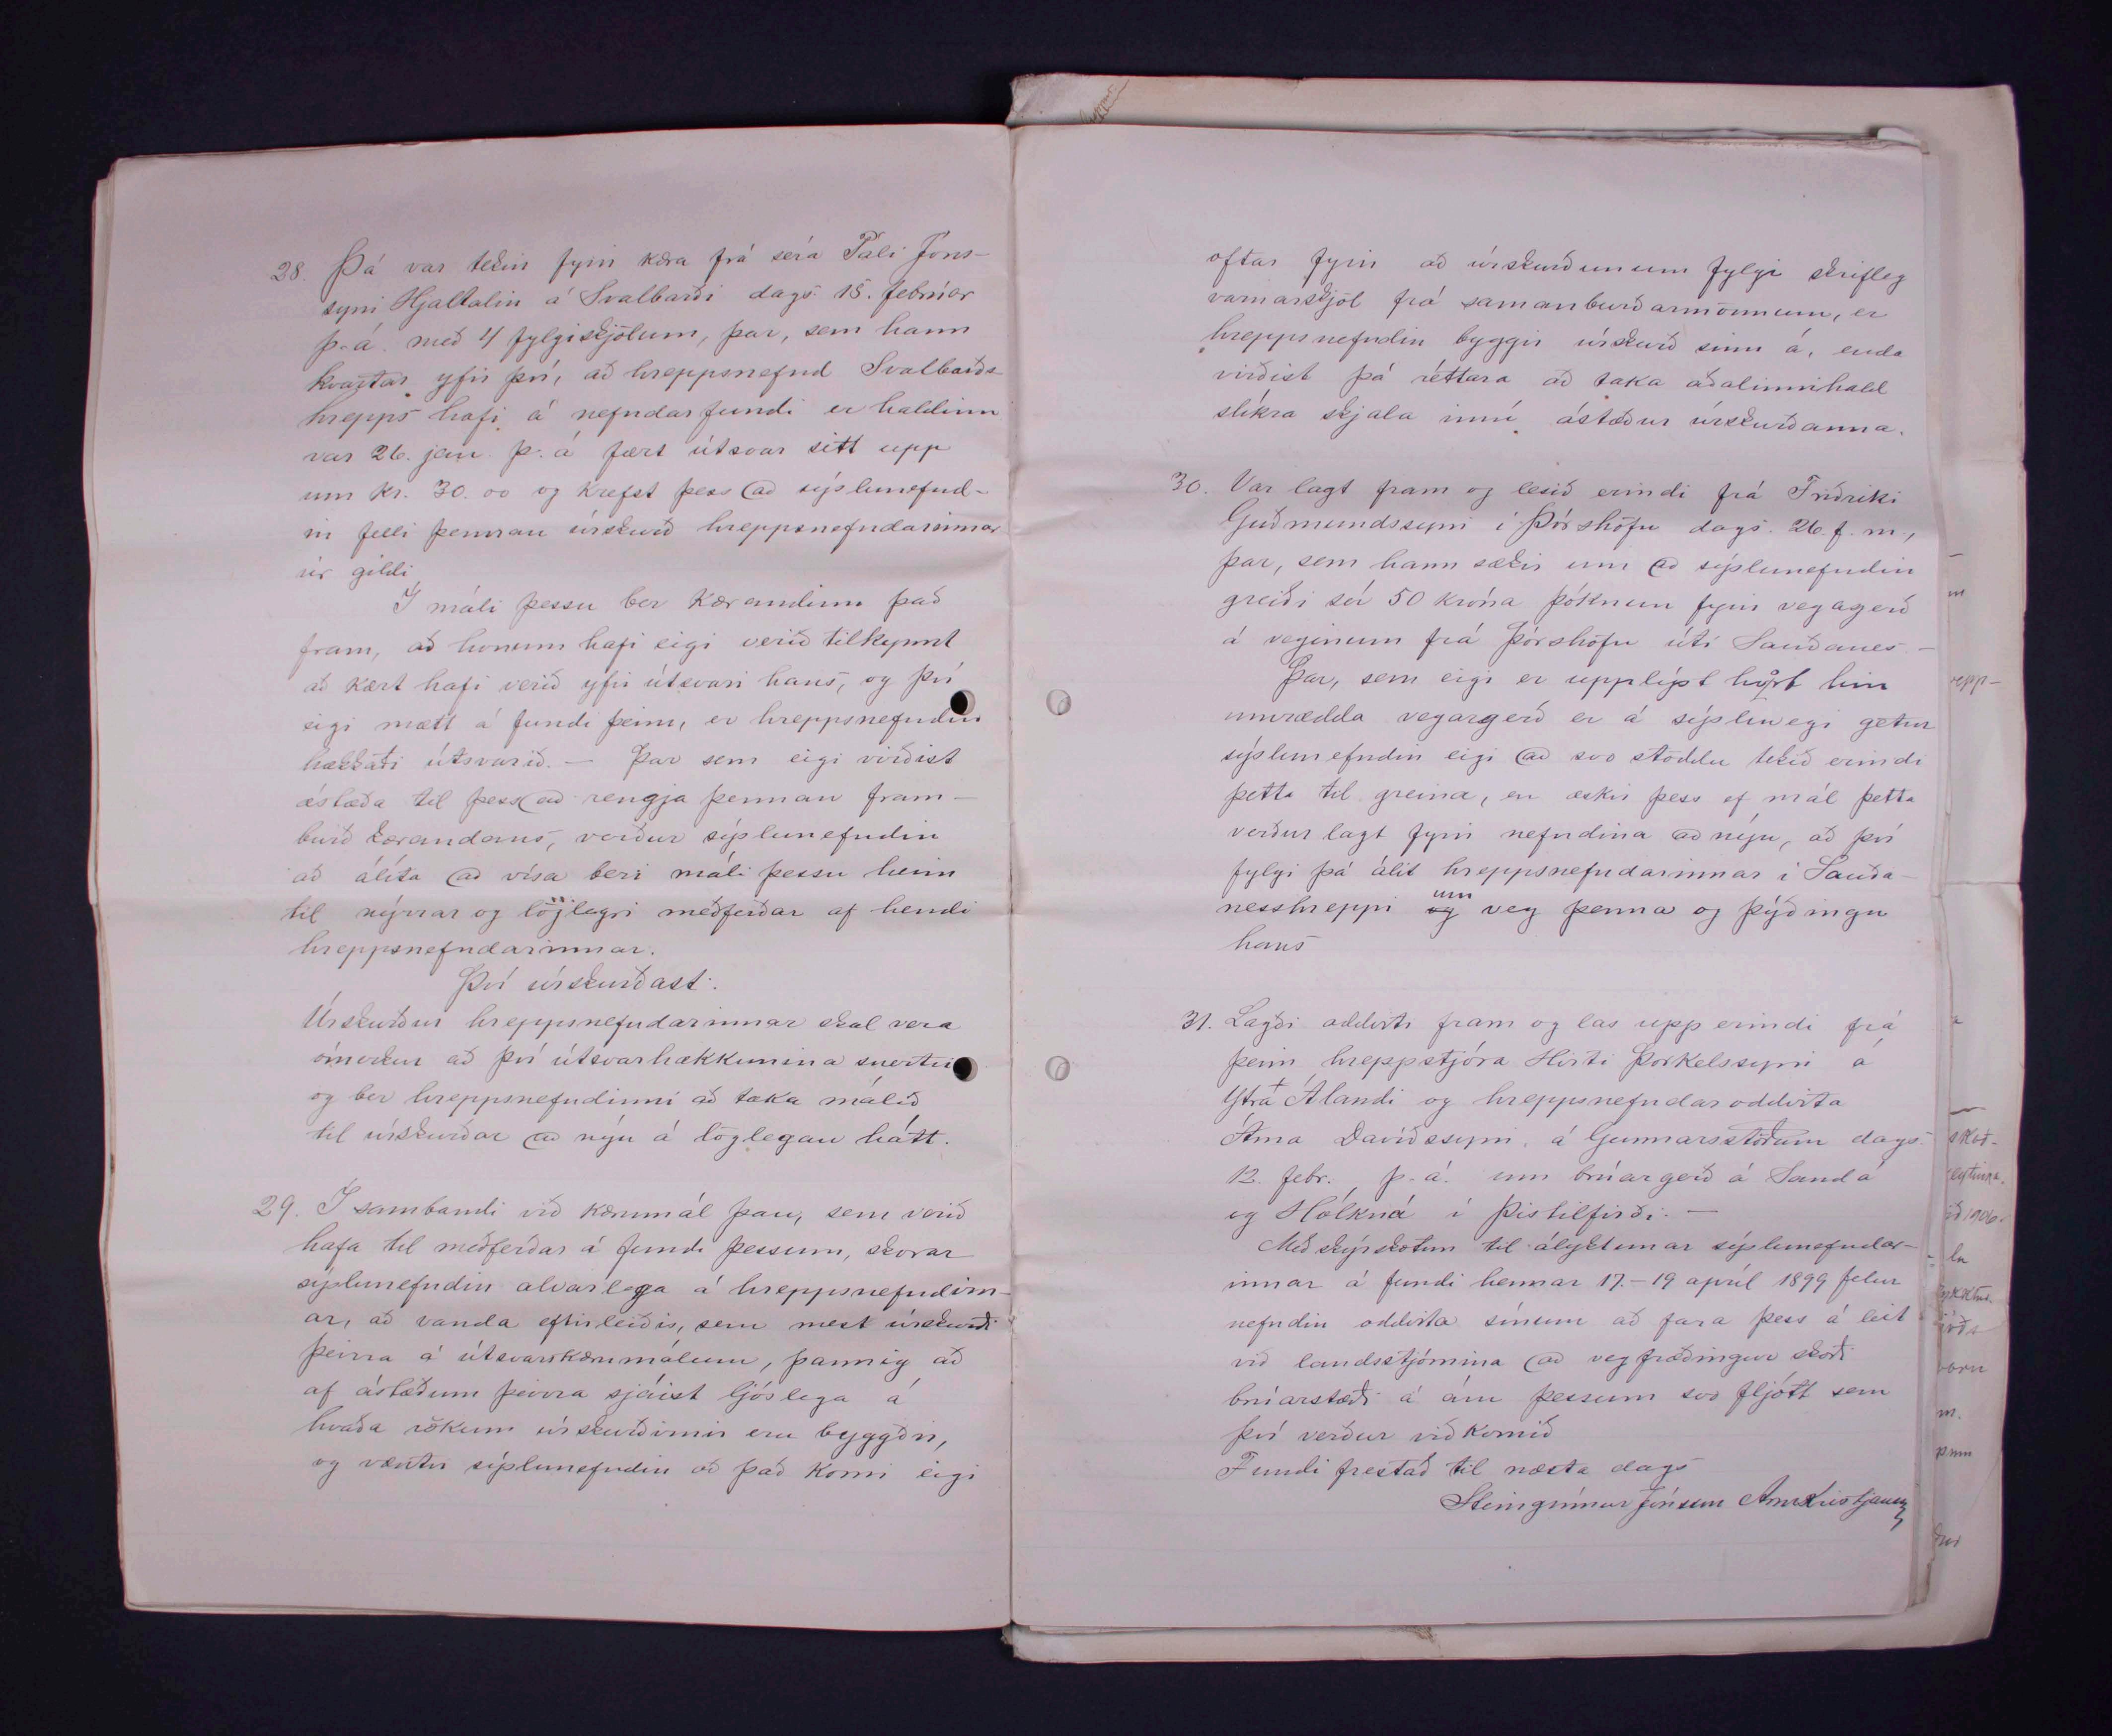 28. Þá var tekin fyrir kæra frá séra Páli Jóns-
syni Hjaltalin á Svalbarði dags. 15. febrúar
þ.á. með 4 fylgiskjölum, þar, sem hann
kvartar yfir því, að hreppsnefnd Svalbarðs-
hrepps hafi á nefndarfundi er haldinn
var 26. jan. þ.á fært útsvar sitt upp
um kr. 30.00 og krefst þess að sýslunefnd-
in felli þennan úrskurð hreppsnefndarinnar
úr gildi
Í máli þessu ber kærandinn það
fram, að honum hafi eigi verið tilkynnt
að kært hafi verið yfir útsvari hans, og því
eigi mætt á fundi þeim, er hreppsnefndin
hækkaði útsvarið. - Þar sem eigi virðist
ástæða til þess að rengja þennan fram-
burð kærandans, verður sýslunefndin
að álíta að vísa beri máli þessu heim
til nýrrar og löglegri meðferðar af hendi
hreppsnefndarinnar.
Því úrskurðast:
Úrskurður hreppsnefndarinnar skal vera
ómerkur að því útsvarhækkunina snertir
og ber hreppsnefndinni að taka málið
til úrskurðar að nýju á löglegan hátt.
29. Í sambandi við kærumál þau, sem verið
hafa til meðferðar á fundi þessum, skorar
sýslunefndin alvarlega á hreppsnefndirn-
ar, að vanda eftirleiðis, sem mest úrskurði
þeirra á útsvarskærumálum, þannig að
af ástæðum þeirra sjáist ljóslega á
hvaða rökum úrskurðirnir eru byggðir,
og væntir sýslunefndin að það komi eigi
oftar fyrir að úrskurðunum fylgi skrifleg
varnarskjöl frá samanburðarmönnum, er
hreppsnefndin byggir úrskurð sinn á, enda
virðist þá réttara að taka aðalinnihald
slíkra skjala inní ástæður úrskurðanna.
30. Var lagt fram og lesið erindi frá Friðriki
Guðmundssyni í Þórshöfn dags. 26. f.m,
þar, sem hann sækir um að sýslunefndin
greiði sér 50 króna þóknun fyrir vegagerð
á veginum frá Þórshöfn útí Sauðanes. -
Þar, sem eigi er upplýst hvort hin
umrædda vegargerð er á sýsluvegi getur
sýslunefndin eigi að svo stöddu tekið erindi
þetta til greina, en æskir þess ef mál þetta
verður lagt fyrir nefndina að nýju, að því
fylgi þá álit hreppsnefndarinnar í Sauða-
nesshreppi um veg þenna og þýðingu
hans
31. Lagði oddviti fram og las upp erindi frá
þeim hreppstjóra Hirti Þorkelssyni á
Ytra Álandi og hreppsnefndaroddvita
Árna Davíðssyni á Gunnarsstöðum dags.
12. febr. þ.á. um brúargerð á Sandá
og Hölkná í Þistilfirði. -
Með skýrskotun til ályktunar sýslunefndar-
innar á fundi hennar 17.-19 apríl 1899 felur
nefndin oddvita sínum að fara þess á leit
við landsstjórnina að vegfræðingur skoði
brúarstæði á ám þessum svo fljótt sem
því verður viðkomið
Fundi frestað til næsta dags
Steingrímur Jónsson Árni Kristjánss